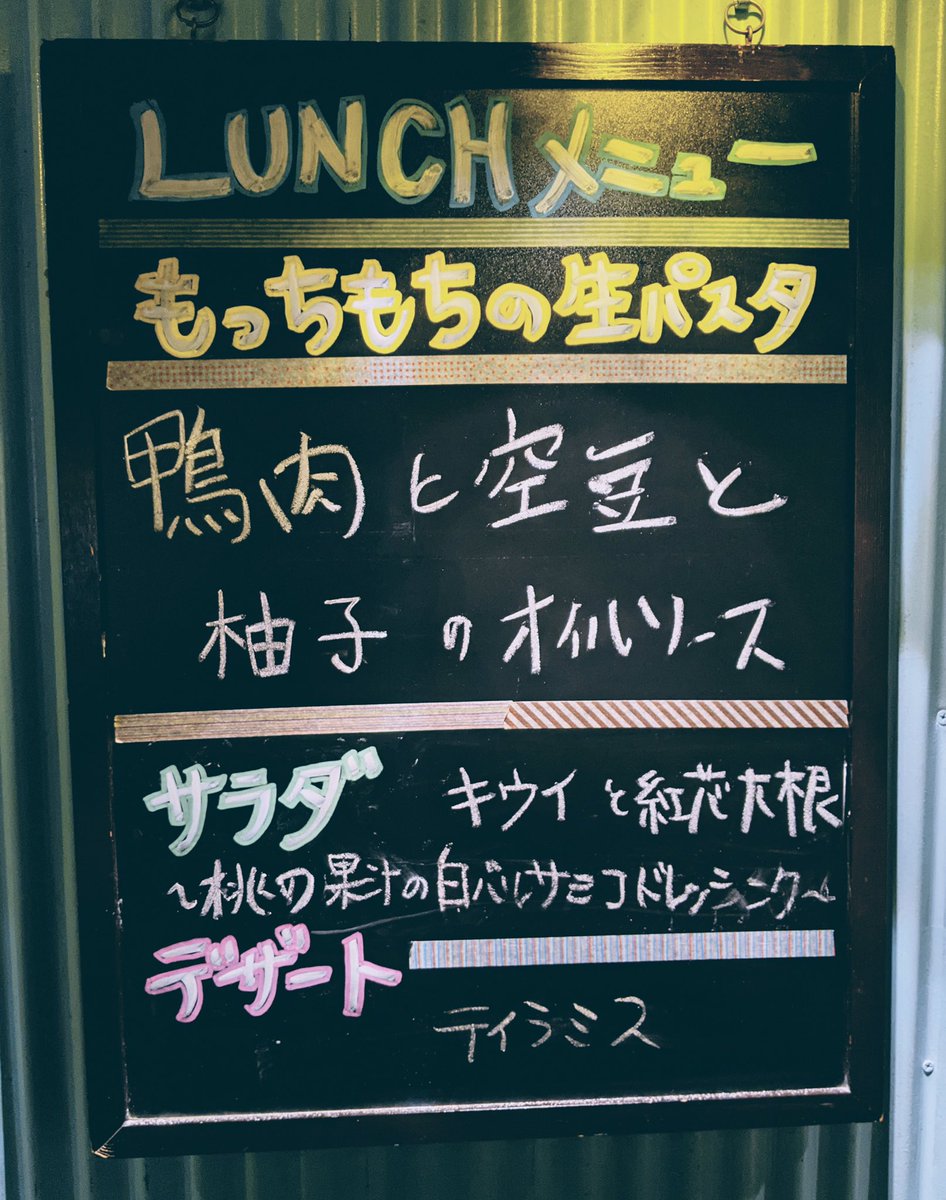 LUNCHメニュー
もっちもちの生パスタ
鴨肉と空豆と
柚子のオイルソース
サラダ キウイと紅芯大根
〜桃の果汁の白バルサミコドレッシング〜
デザート
ティラミス